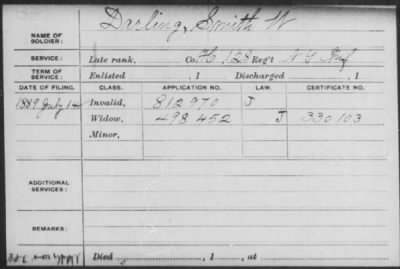 NAME OF SOLDIER: Darling, Smith W
SERVICE: Late rank, Co. H, 128 Reg't N.Y. Inf
TERM OF SERVICE: Enlisted , 1 Discharged , 1
DATE OF FILING. CLASS. APPLICATION NO. LAW. CERTIFICATE NO.
1889 July 1 Invalid, 812 970 J
Widow, 498 452 J 330 103
Minor,
ADDITIONAL SERVICES:
REMARKS:
Died , 1 , at